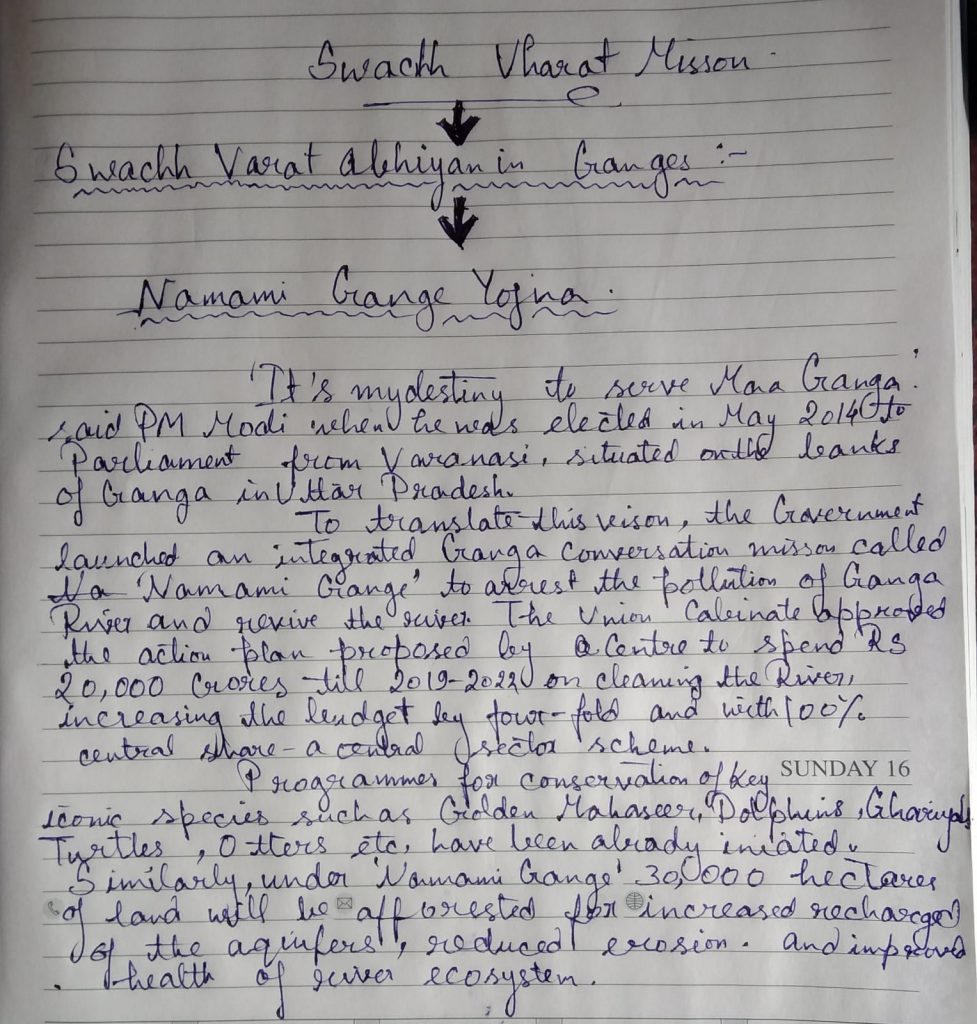 Swachh Vharat Misson.
Swachh Varat Abhiyan in Ganges :-
Namami Gange Yojna.
'It's my destiny to serve Maa Ganga.'
said PM Modi when he was elected in May 2014 to
Parliament from Varanasi, situated on the banks
of Ganga in Uttar Pradesh.
To translate this vison, the Government
launched an integrated Ganga Conversation misson called
Na 'Namami Gange' to arrest the pollution of Ganga
River and revive the river. The Union Cabinate approved
the action plan proposed by Centre to spend RS
20,000 Crores till 2019-2020 on cleaning the River,
increasing the budget by four-fold and with 100%
central share - a central sector scheme.
SUNDAY 16
Programmes for conservation of key
iconic species such as Golden Mahaseer, Dolphins, Gharials
Turtles, Otters etc, have been already iniated.
Similarly, under 'Namami Gange' 30,000 hectares
of land will be afforested for increased recharged
of the aquifers, reduced erosion. and improved
health of river ecosystem.